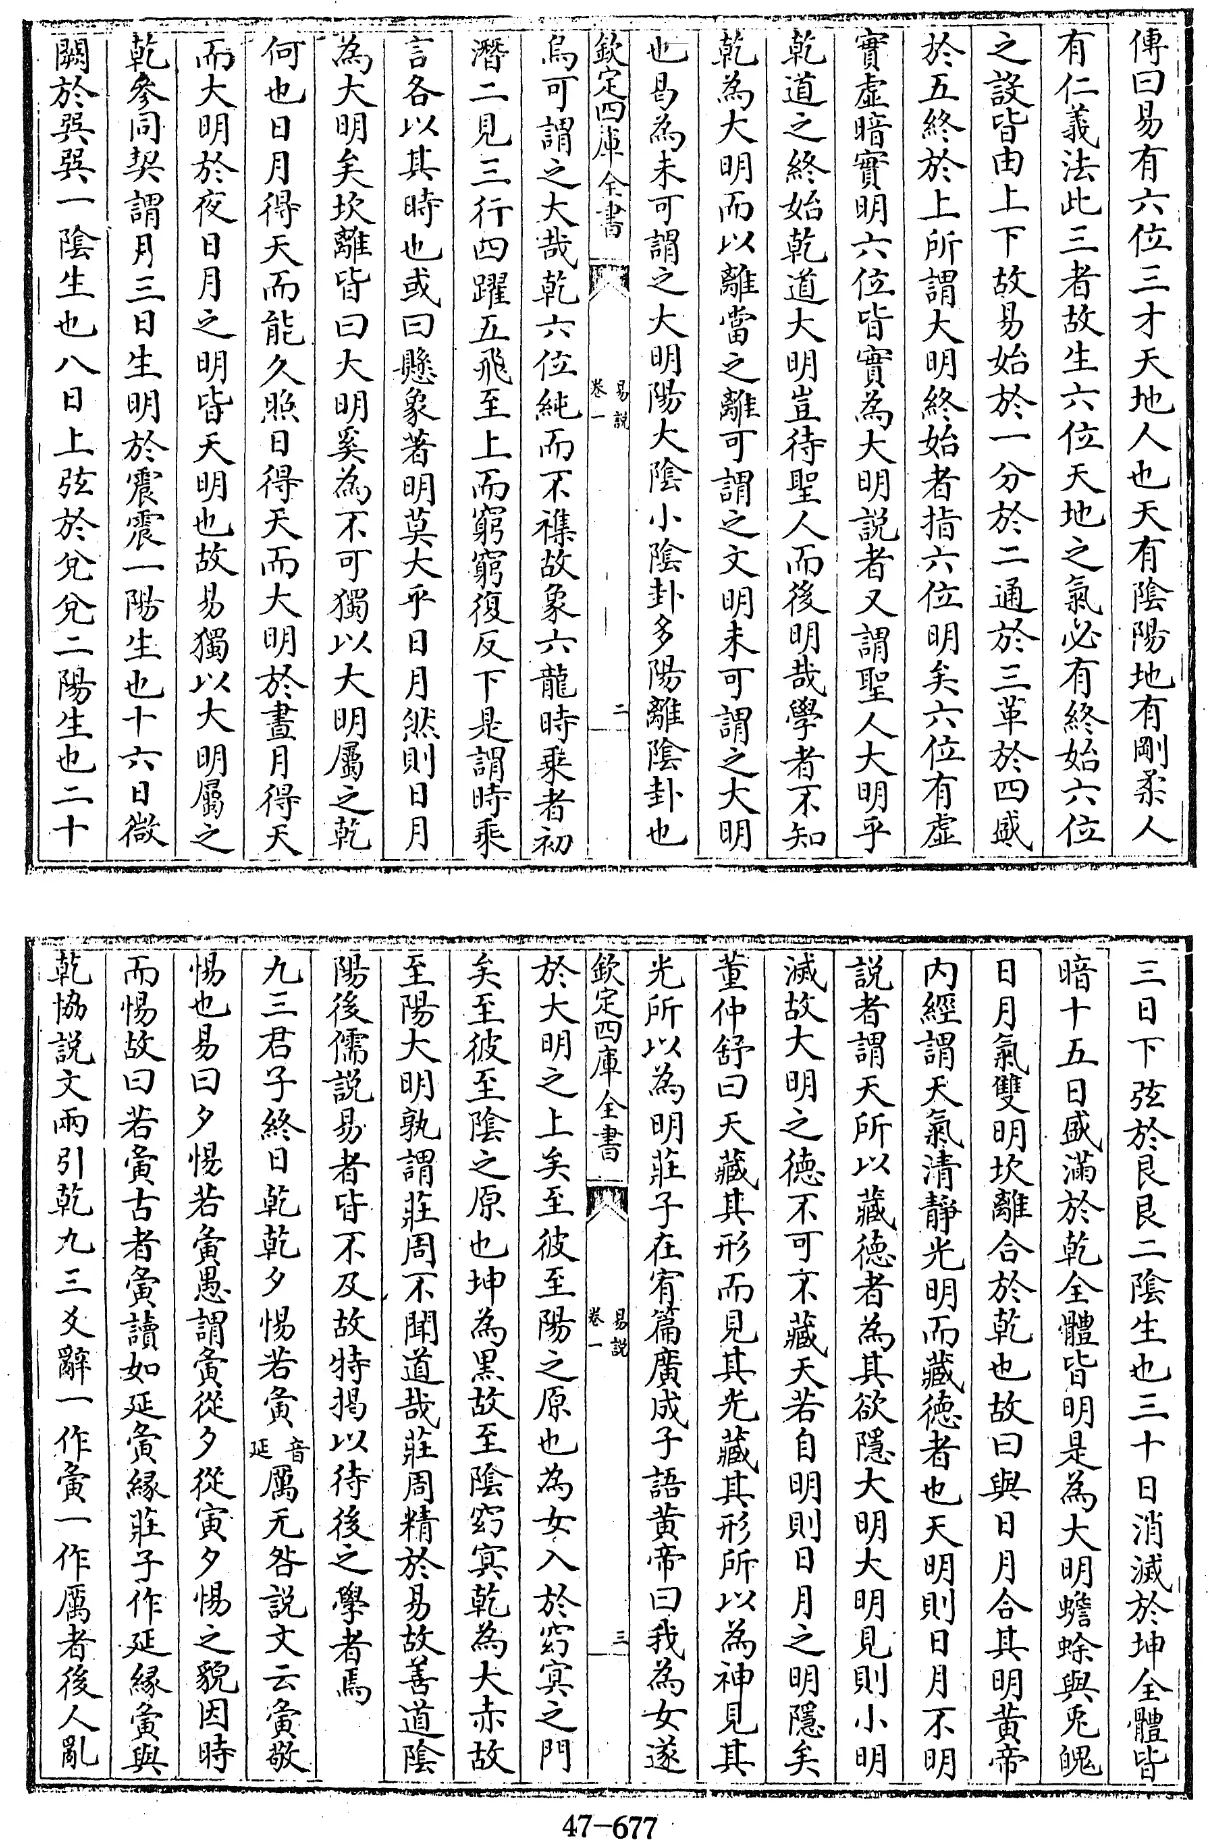 傳曰易有六位三才天地人也天有陰陽地有剛柔人
有仁義法此三者故生六位天地之氣必有終始六位
之設皆由上下故易始於一分於二通於三革於四盛
於五終於上所謂大明終始者指六位明矣六位有虛
實虛暗實明六位皆實為大明説者又謂聖人大明乎
乾道之終始乾道大明豈待聖人而後明哉學者不知
乾為大明而以離當之離可謂之文明未可謂之大明
也曷為未可謂之大明陽大陰小陰卦多陽離陰卦也
欽定四庫全書
易説
卷一
二
烏可謂之大哉乾六位純而不襍故象六龍時乘者初
潛二見三行四躍五飛至上而窮窮復反下是謂時乘
言各以其時也或曰懸象著明莫大乎日月然則日月
為大明矣坎離皆曰大明奚為不可獨以大明屬之乾
何也日月得天而能久照日得天而大明於晝月得天
而大明於夜日月之明皆天明也故易獨以大明屬之
乾參同契謂月三日生明於震震一陽生也十六日微
闕於巽巽一陰生也八日上弦於兌兌二陽生也二十
三日下弦於艮艮二陰生也三十日消滅於坤全體皆
暗十五日盛滿於乾全體皆明是為大明蟾蜍與兎魄
日月氣雙明坎離合於乾也故曰與日月合其明黄帝
内經謂天氣清静光明而藏徳者也天明則日月不明
説者謂天所以藏徳者為其欲隱大明大明見則小明
滅故大明之徳不可不藏天若自明則日月之明隱矣
董仲舒曰天藏其形而見其光藏其形所以為神見其
光所以為明莊子在宥篇廣成子語黄帝曰我為女遂
欽定四庫全書
易説
卷一
三
於大明之上矣至彼至陽之原也為女入於窈冥之門
矣至彼至陰之原也坤為黒故至陰窈冥乾為大赤故
至陽大明孰謂莊周不聞道哉莊周精於易故善道陰
陽後儒説易者皆不及故特掲以待後之學者焉
九三君子終日乾乾夕惕若夤音延厲无咎説文云夤敬
惕也易曰夕惕若夤愚謂夤從夕從寅夕惕之貌因時
而惕故曰若夤古者夤讀如延夤縁莊子作延縁夤與
乾協説文兩引乾九三爻辭一作夤一作厲者後人亂
47-677